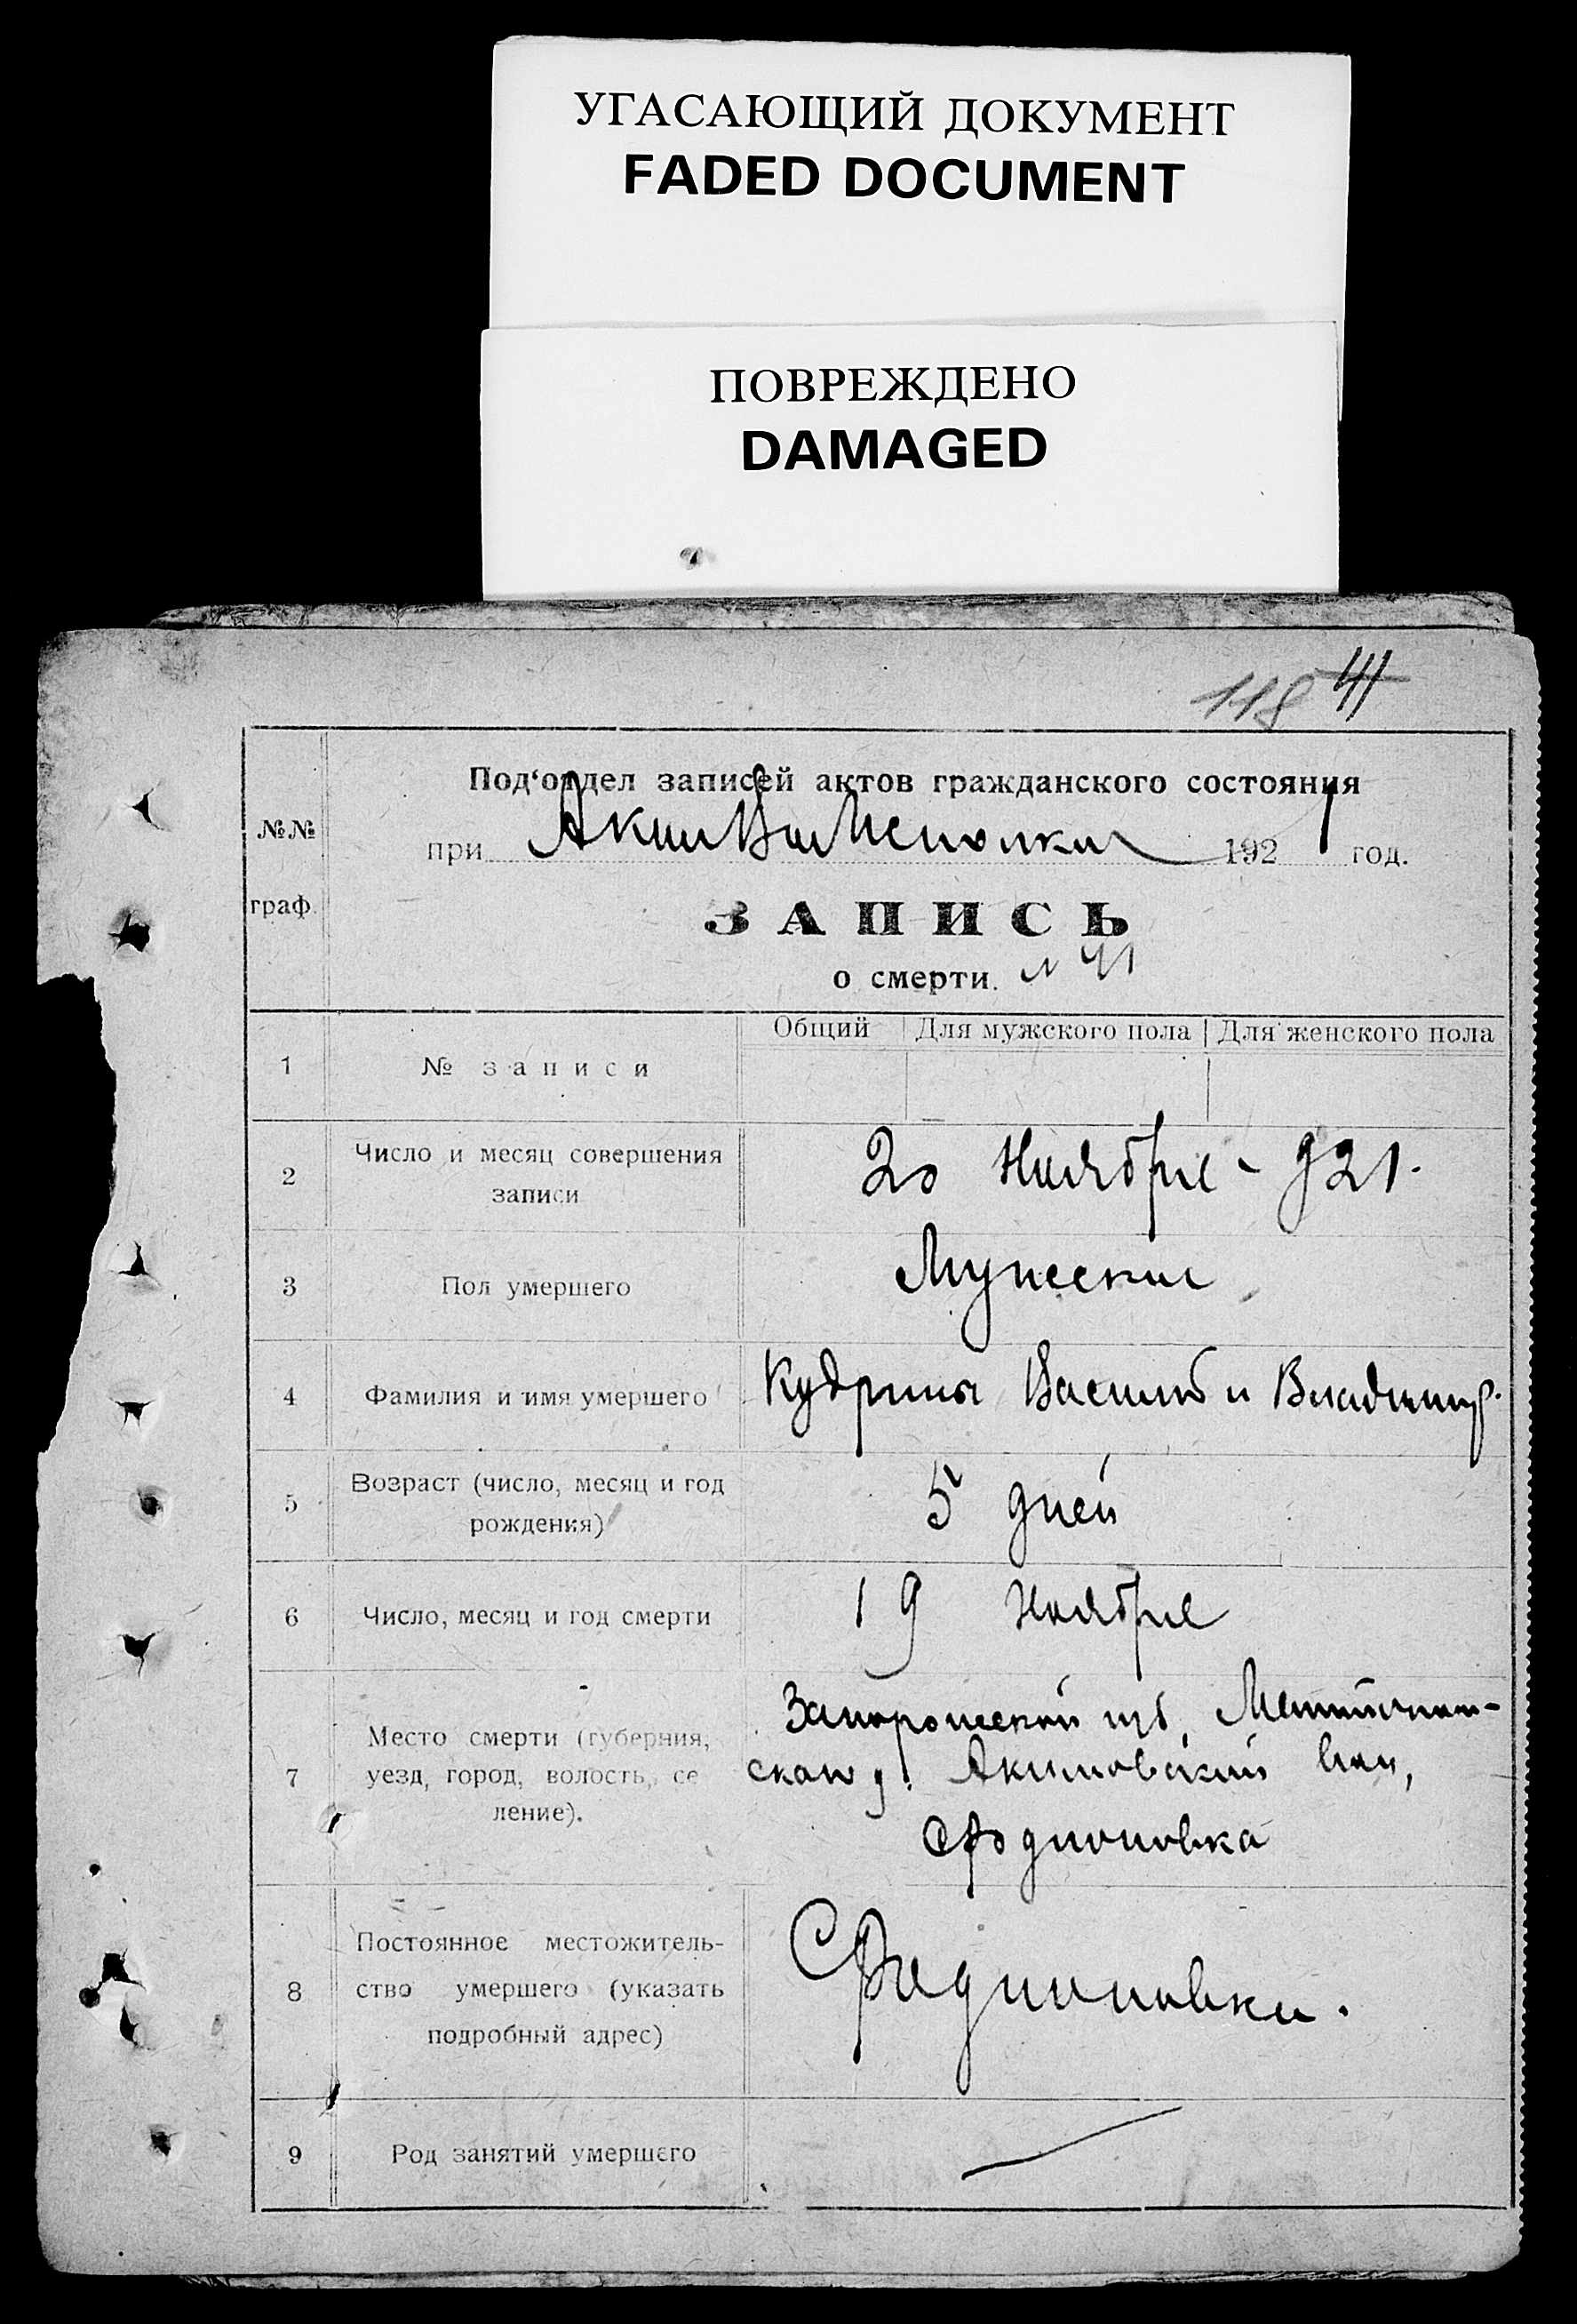 УГАСАЮЩИЙ ДОКУМЕНТ
FADED DOCUMENT
ПОВРЕЖДЕНО
DAMAGED
118 41
Под‘отдел записей актов гражданского состояния
при 1921 год.
№№ граф.
ЗАПИСЬ
о смерти. N 41
Общий Для мужского пола Для женского пола
1 № записи
2 Число и месяц совершения
записи
20 Ноября - 921.
3 Пол умершего Мужеский
4 Фамилия и имя умершего Кудрины Василий и Владимир.
5 Возраст (число, месяц и год
рождения)
5 дней
6 Число, месяц и год смерти 19 Ноября
7 Место смерти (губерния,
уезд, город, волость, се
ление).
Запорожской губ. Мелитополь-
ского у. Акимовской вол,
с Родионовка
8 Постоянное местожитель-
ство умершего (указать
подробный адрес)
С Родионовки.
9 Род занятий умершего